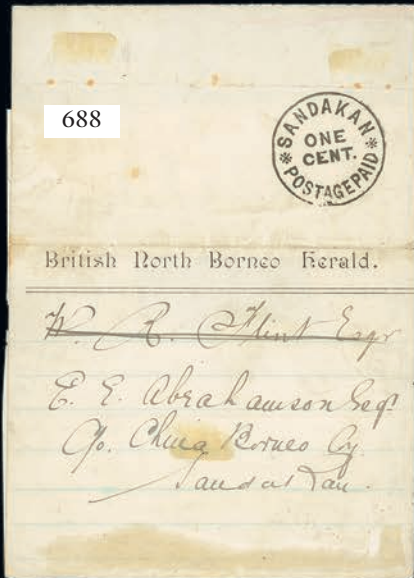 688
SANDAKAN
ONE
CENT.
POSTAGE PAID
British North Borneo Herald.
W. R. Flint Esqr
E. E. Abrahamson Esqr
C/o. China Borneo Cy
Sandakan.